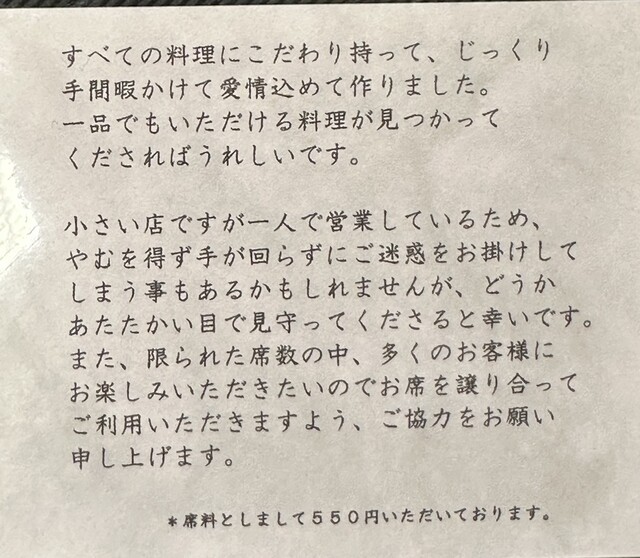 すべての料理にこだわり持って、じっくり
手間暇かけて愛情込めて作りました。
一品でもいただける料理が見つかって
くださればうれしいです。
小さい店ですが一人で営業しているため、
やむを得ず手が回らずにご迷惑をお掛けして
しまう事もあるかもしれませんが、どうか
あたたかい目で見守ってくださると幸いです。
また、限られた席数の中、多くのお客様に
お楽しみいただきたいのでお席を譲り合って
ご利用いただきますよう、ご協力をお願い
申し上げます。
＊席料としまして５５０円いただいております。